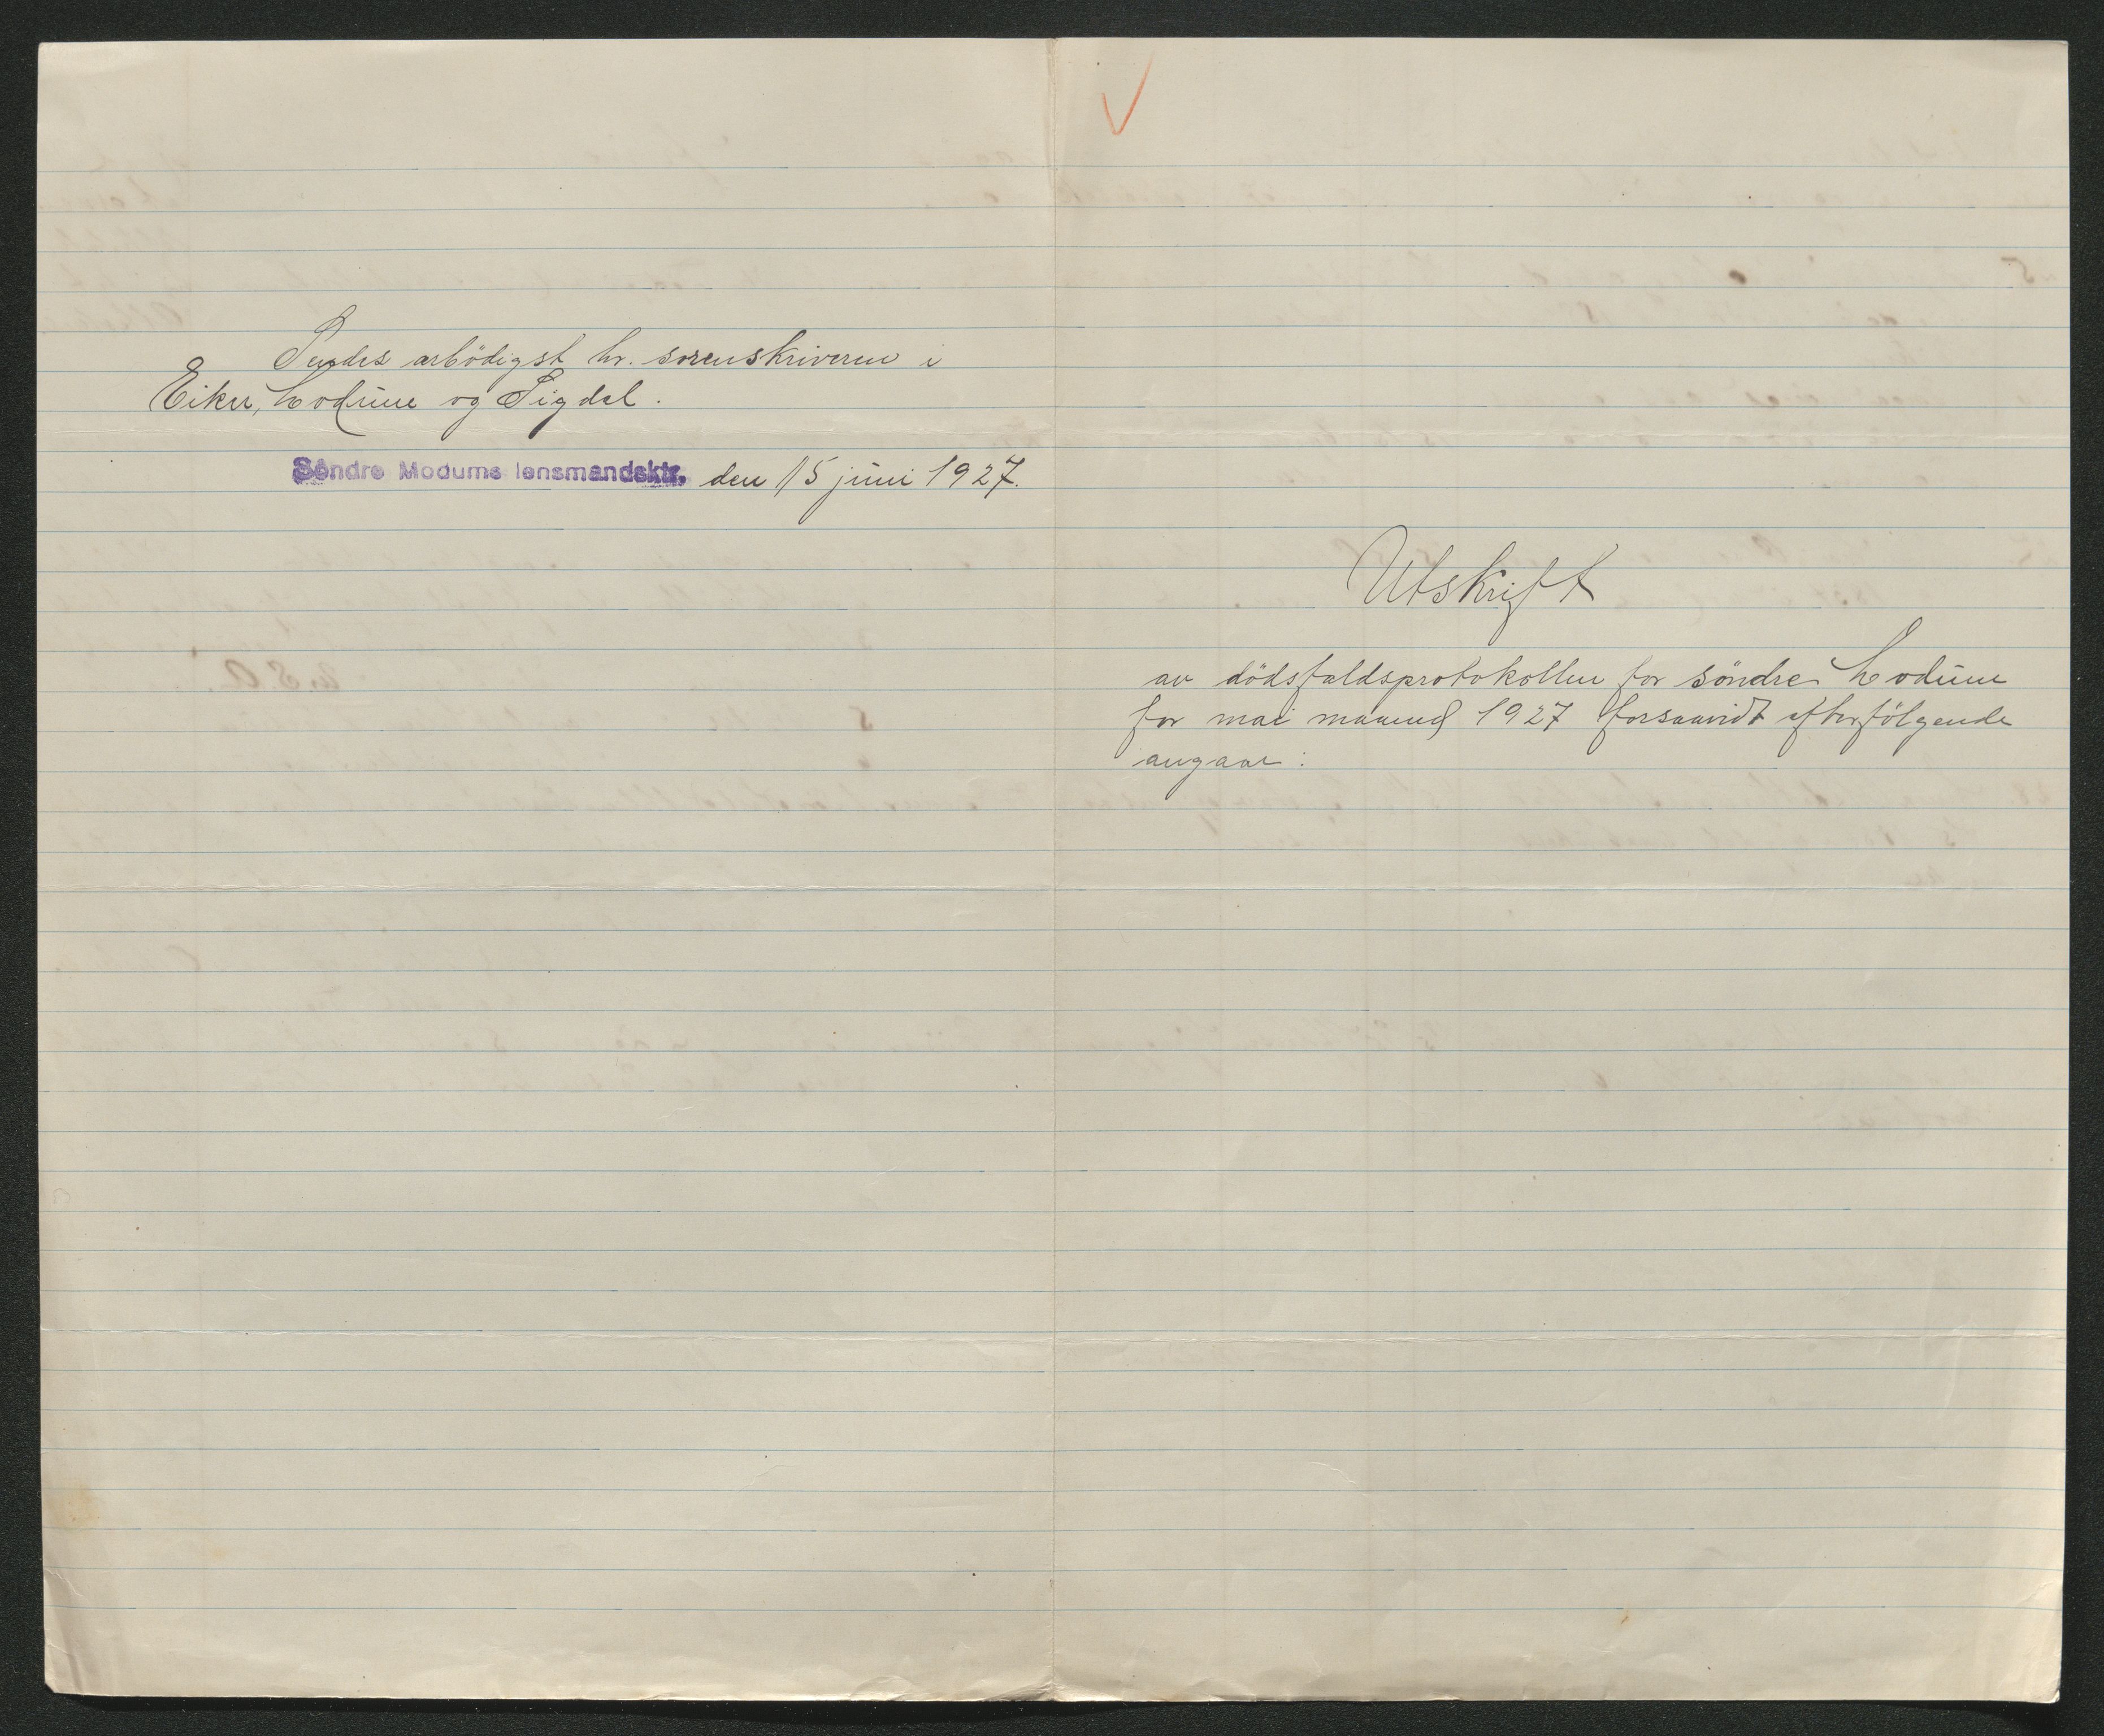 Sendes ærbödigst hr. sorenskriveren i
Eiker, Modum og Sigdal.
Söndre Modums lensmandsktr. den 15 juni 1927.
Utskrift
av dödsfaldsprotokollen for söndre Modum
for mai maaned 1927 forsaavidt efterfölgende
angaar: